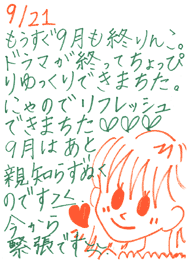 9/21
もうすぐ9月も終りんこ。
ドラマが終ってちょっぴ
りゆっくりできまちた。
にゃのでリフレッシュ
できまちた♡♡♡
9月はあと
親知らずぬく
のですっ、
今から
緊張ですっ、